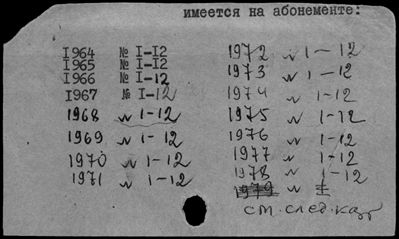 имеется на абонементе:
1964 № 1-12
1965 № 1-12
1966 № 1-12
1967 № 1-12
1968 № 1-12
1969 № 1-12
1970 № 1-12
1971 № 1-12
1972 № 1-12
1973 № 1-12
1974 № 1-12
1975 № 1-12
1976 № 1-12
1977 № 1-12
1978 № 1-12
1979 № 1
см. след. кар